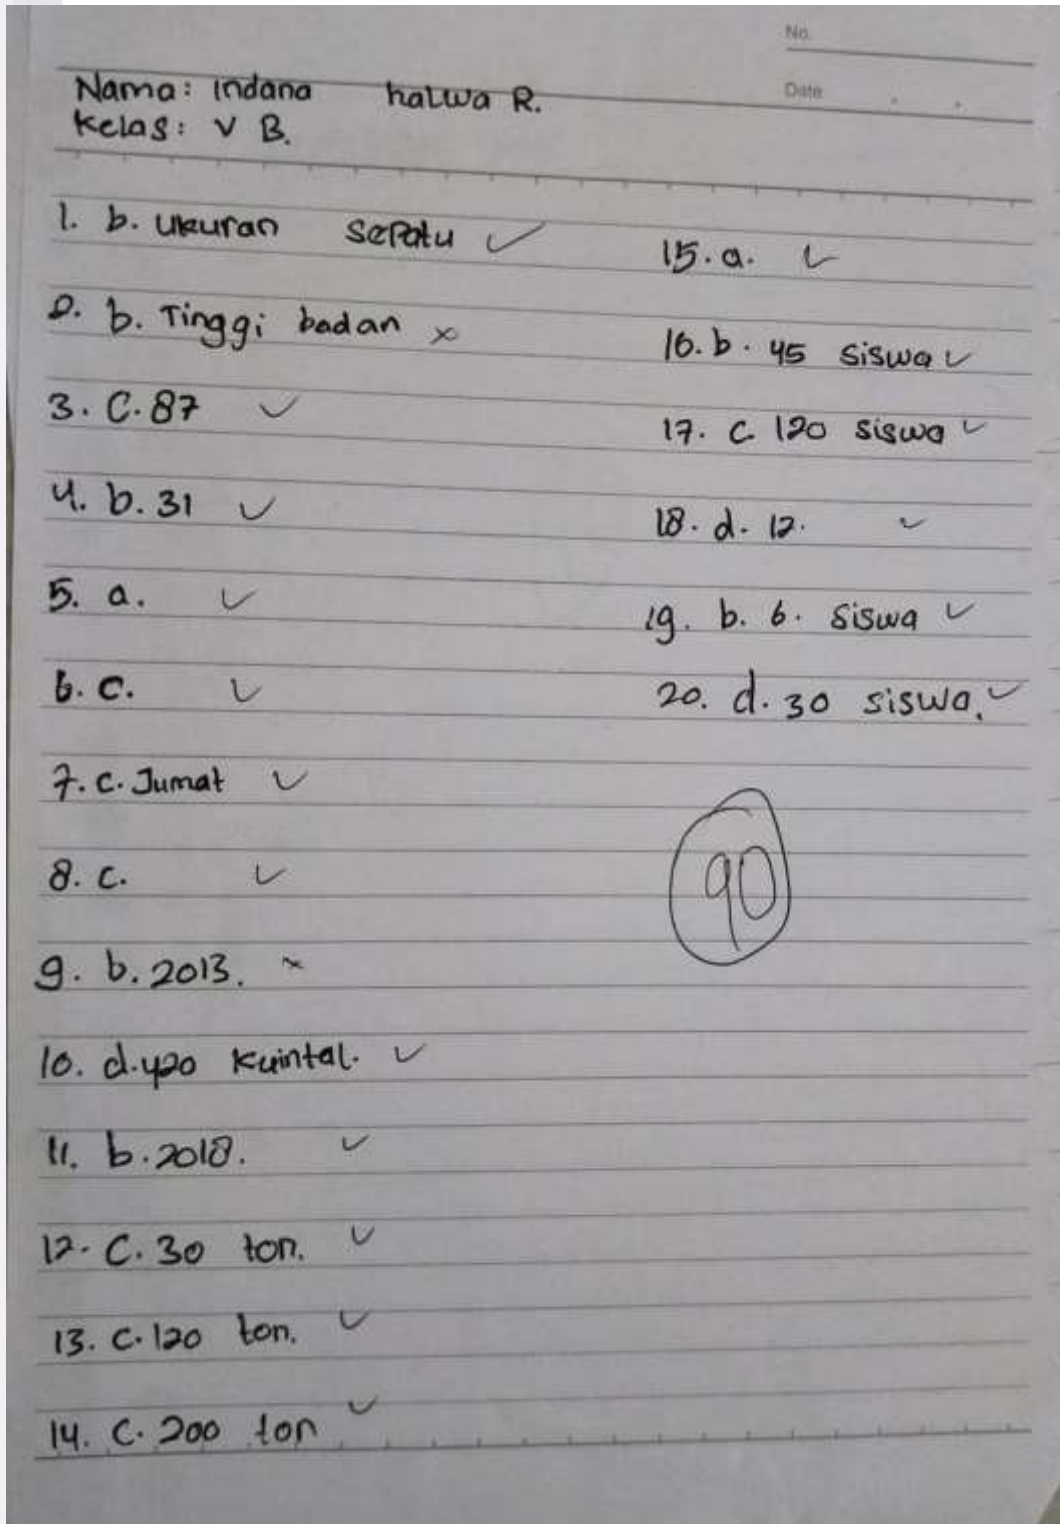 No.
Date
Nama: Indana halwa R.
Kelas: V B.
1. b. Ukuran Sepatu ✓
2. b. Tinggi badan ×
3. C. 87 ✓
4. b. 31 ✓
5. a. ✓
6. c. ✓
7. c. Jumat ✓
8. c. ✓
9. b. 2013. ×
10. d. 420 Kuintal. ✓
11. b. 2018. ✓
12. C. 30 ton. ✓
13. C. 120 ton. ✓
14. C. 200 ton ✓
15. a. ✓
16. b. 45 siswa ✓
17. C. 120 siswa ✓
18. d. 12. ✓
19. b. 6. siswa ✓
20. d. 30 siswa. ✓
90